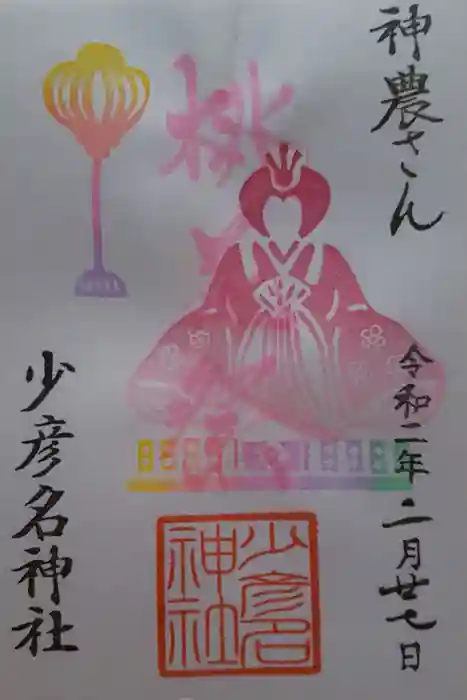 神農さん
令和二年二月廿七日
桃の節
少彦名神社
少彦名
神社